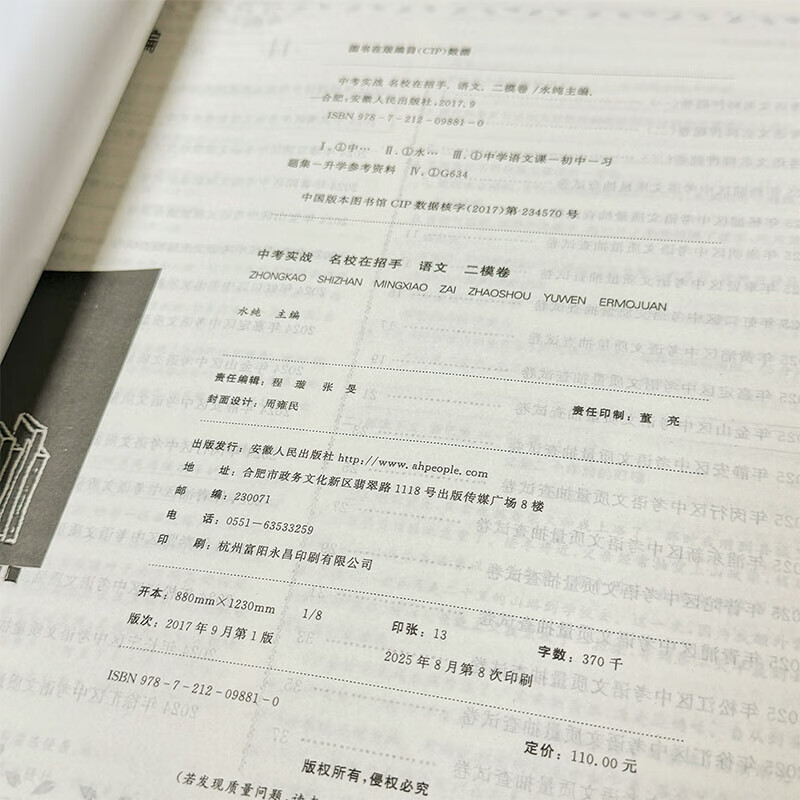 图书在版编目(CIP)数据
中考实战 名校在招手. 语文. 二模卷/水纯主编.
—合肥:安徽人民出版社,2017.9
ISBN 978-7-212-09881-0
Ⅰ.①中… Ⅱ.①水… Ⅲ.①中学语文课—初中—习
题集—升学参考资料 Ⅳ.①G634
中国版本图书馆CIP数据核字(2017)第234570号
中考实战 名校在招手 语文 二模卷
ZHONGKAO SHIZHAN MINGXIAO ZAI ZHAOSHOU YUWEN ERMOJUAN
水纯 主编
责任编辑:程 璇 张 旻
封面设计:周雍民
责任印制:董 亮
出版发行:安徽人民出版社 http://www.ahpeople.com
地 址:合肥市政务文化新区翡翠路1118号出版传媒广场8楼
邮 编:230071
电 话:0551-63533259
印 刷:杭州富阳永昌印刷有限公司
开本:880mm×1230mm 1/8
印张:13
字数:370千
版次:2017年9月第1版
2025年8月第8次印刷
ISBN 978-7-212-09881-0
定价:110.00元
版权所有,侵权必究
(若发现质量问题,请